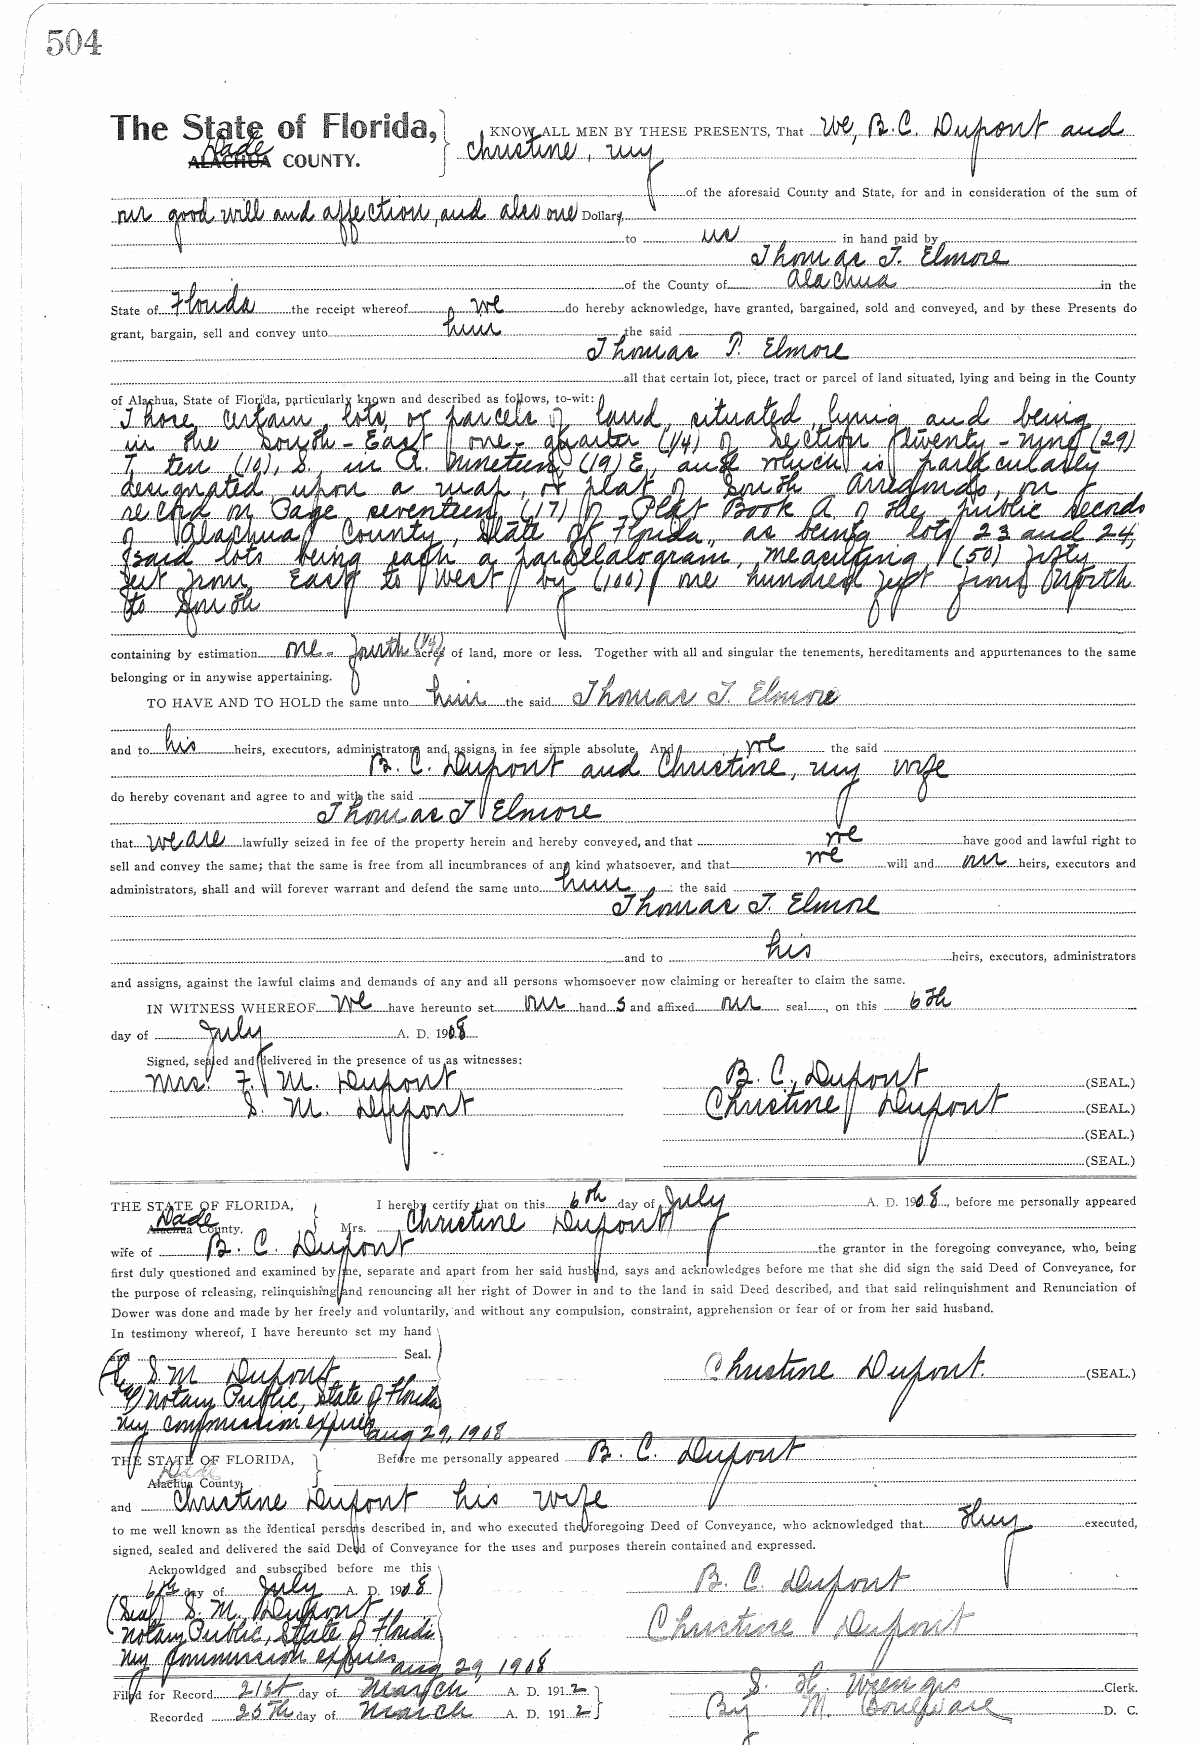 504
The State of Florida, KNOW ALL MEN BY THESE PRESENTS, That We, B. C. Dupont and
Dade
ALACHUA COUNTY. Christine, my
of the aforesaid County and State, for and in consideration of the sum of
our good will and affection, and also one Dollars,
to us in hand paid by
Thomas T. Elmore
of the County of Alachua in the
State of Florida the receipt whereof we do hereby acknowledge, have granted, bargained, sold and conveyed, and by these Presents do
grant, bargain, sell and convey unto him the said
Thomas T. Elmore
all that certain lot, piece, tract or parcel of land situated, lying and being in the County
of Alachua, State of Florida, particularly known and described as follows, to-wit:
Those certain lots, or parcels of land, situated lying and being
in the South-East one-quarter (1/4) of Section Twenty-nine (29)
T. ten (10), S., in R. Nineteen (19) E, and which is particularly
designated upon a map, or plat of South Arredondo, on
record on Page seventeen (17) of Plat Book A of the public records
of Alachua County, State of Florida, as being lots 23 and 24,
said lots being each a parallalogram, measuring (50) fifty
feet from East to West by (100) one hundred feet from North
to South
containing by estimation one-fourth (1/4) acres of land, more or less. Together with all and singular the tenements, hereditaments and appurtenances to the same
belonging or in anywise appertaining.
TO HAVE AND TO HOLD the same unto him the said Thomas T. Elmore
and to his heirs, executors, administrators and assigns in fee simple absolute. And we the said
B. C. Dupont and Christine, my wife
do hereby covenant and agree to and with the said
Thomas T Elmore
that we are lawfully seized in fee of the property herein and hereby conveyed, and that we have good and lawful right to
sell and convey the same; that the same is free from all incumbrances of any kind whatsoever, and that we will and our heirs, executors and
administrators, shall and will forever warrant and defend the same unto him the said
Thomas T. Elmore
and to his heirs, executors, administrators
and assigns, against the lawful claims and demands of any and all persons whomsoever now claiming or hereafter to claim the same.
IN WITNESS WHEREOF We have hereunto set our hand s and affixed our seal, on this 6th
day of July A. D. 1908
Signed, sealed and delivered in the presence of us as witnesses:
Mrs. F. M. Dupont B. C. Dupont (SEAL.)
S. M. Dupont Christine Dupont (SEAL.)
(SEAL.)
(SEAL.)
THE STATE OF FLORIDA, I hereby certify that on this 6th day of July A. D. 1908, before me personally appeared
Dade
Alachua County. Mrs. Christine Dupont
wife of B. C. Dupont the grantor in the foregoing conveyance, who, being
first duly questioned and examined by me, separate and apart from her said husband, says and acknowledges before me that she did sign the said Deed of Conveyance, for
the purpose of releasing, relinquishing and renouncing all her right of Dower in and to the land in said Deed described, and that said relinquishment and Renunciation of
Dower was done and made by her freely and voluntarily, and without any compulsion, constraint, apprehension or fear of or from her said husband.
In testimony whereof, I have hereunto set my hand
and Seal.
S. M Dupont Christine Dupont. (SEAL.)
Notary Public, State of Florida
My commission expires Aug 29, 1908
THE STATE OF FLORIDA, Before me personally appeared B. C. Dupont
Dade
Alachua County
and Christine Dupont his wife
to me well known as the identical persons described in, and who executed the foregoing Deed of Conveyance, who acknowledged that they executed,
signed, sealed and delivered the said Deed of Conveyance for the uses and purposes therein contained and expressed.
Acknowldged and subscribed before me this
6th day of July A. D. 1908 B. C. Dupont
(Seal) S. M. Dupont
Notary Public, State of Florida Christine Dupont
My commission expires Aug 29, 1908
Filed for Record 21st day of March A. D. 1912 S. H. Wienges Clerk.
Recorded 25th day of March A. D. 1912 By M. Boulware D. C.